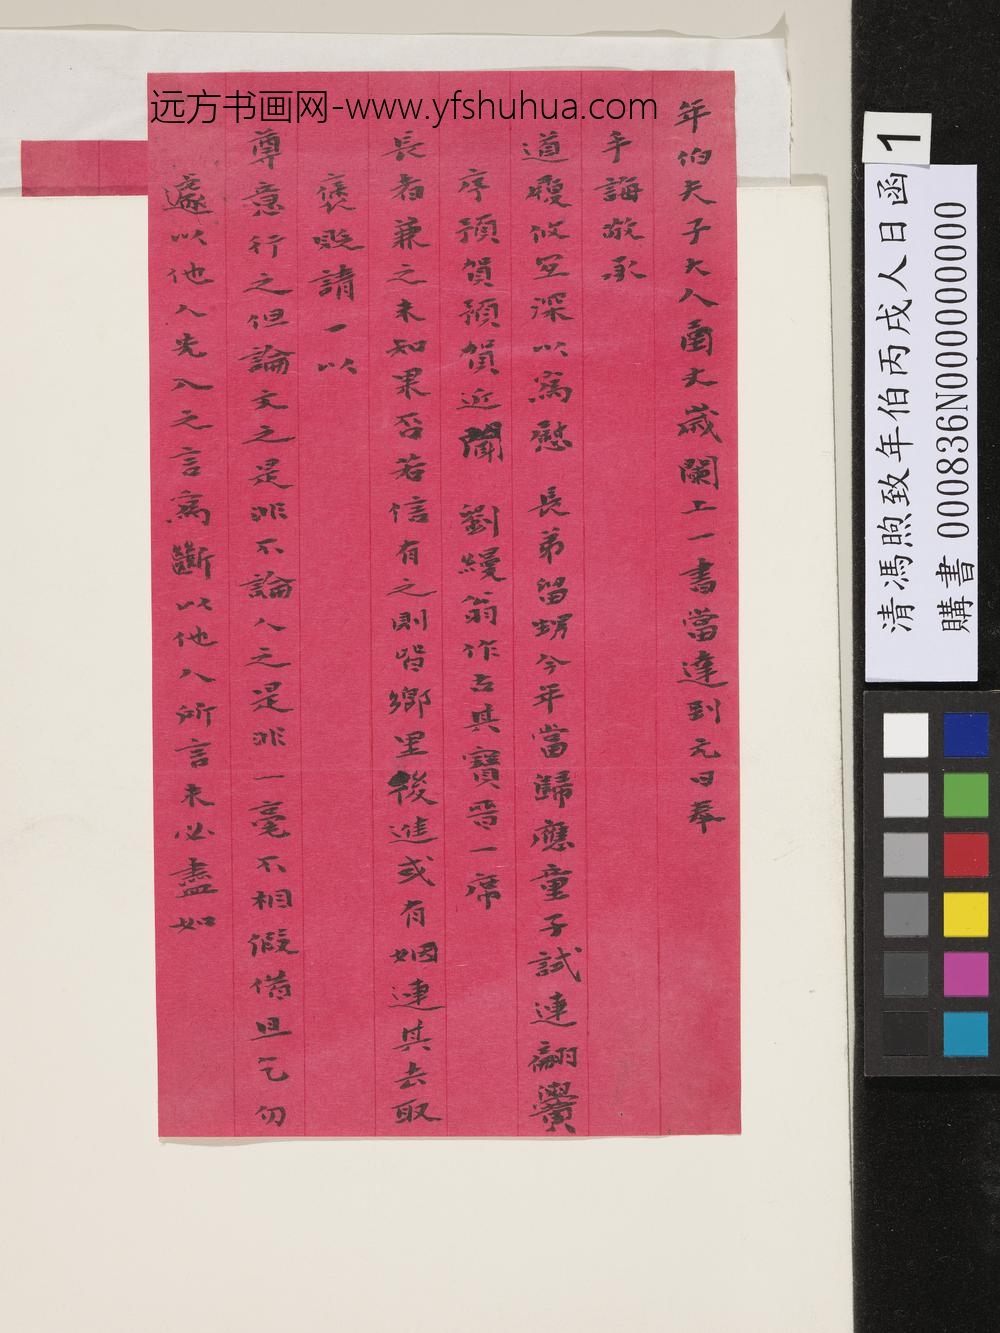 远方书画网-www.yfshuhua.com
年伯夫子大人函丈歲闌上一書當達到元日奉
手誨敬承
道履攸宜深以為慰 長弟留甥今年當歸應童子試連翩黌
序預賀預賀近聞 劉縵翁作古其寶晋一席
長者兼之未知果否若信有之則皆鄉里後進或有姻連其去取
褒貶請一以
尊意行之但論文之是非不論人之是非一毫不相假借且乞勿
遽以他人先入之言為斷以他人所言未必盡如
清馮煦致年伯丙戌人日函
購書 000836N000000000
1